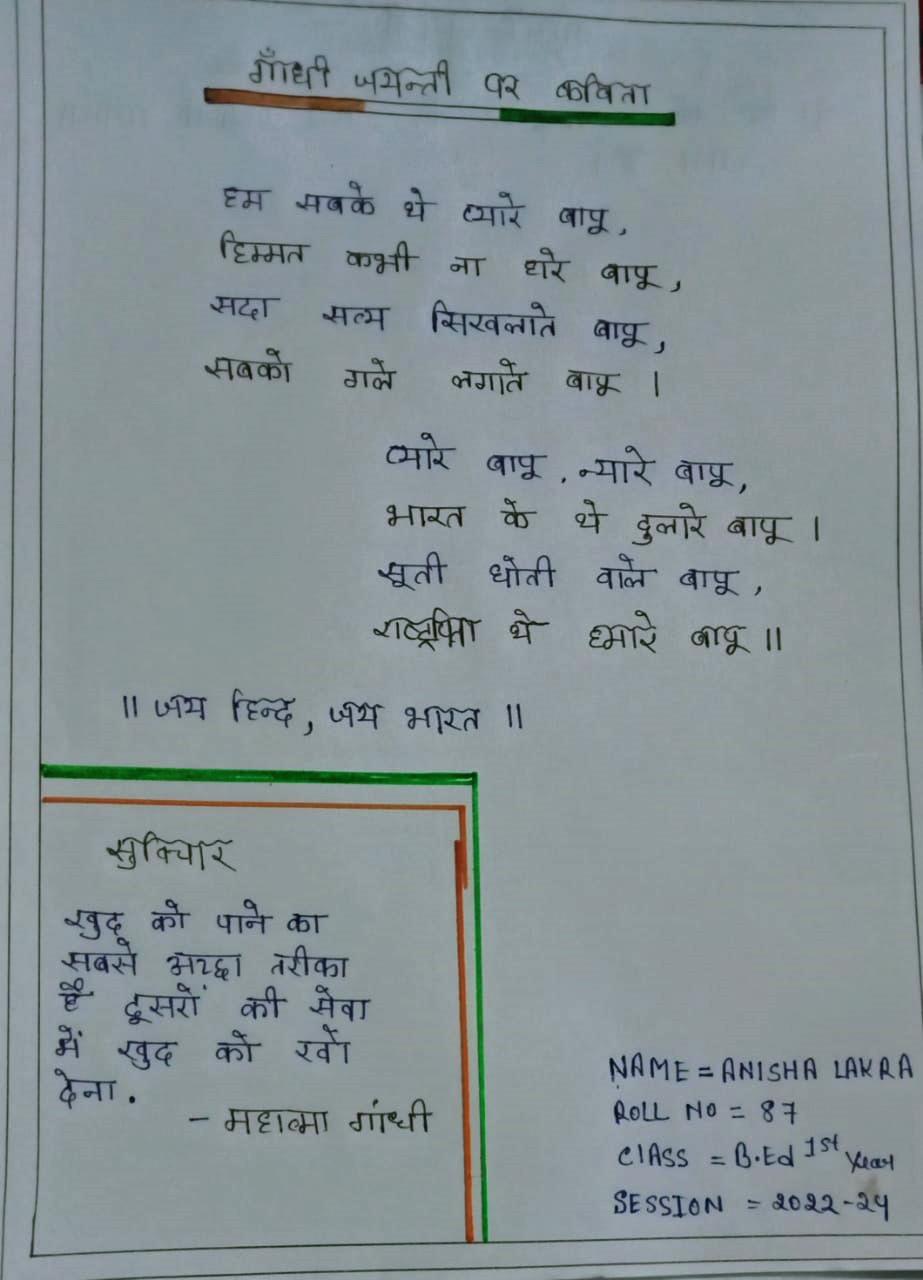 गाँधी जयन्ती पर कविता
हम सबके थे प्यारे बापू,
हिम्मत कभी ना हारे बापू,
सदा सत्य सिखलाते बापू,
सबको गले लगाते बापू ।
प्यारे बापू, न्यारे बापू,
भारत के थे दुलारे बापू ।
सूती धोती वाले बापू,
राष्ट्रपिता थे हमारे बापू ॥
॥ जय हिन्द, जय भारत ॥
सुविचार
खुद को पाने का
सबसे अच्छा तरीका
है दूसरों की सेवा
में खुद को खो
देना.
- महात्मा गांधी
NAME = ANISHA LAKRA
ROLL NO = 87
ClASS = B.Ed 1st Year
SESSION = 2022-24